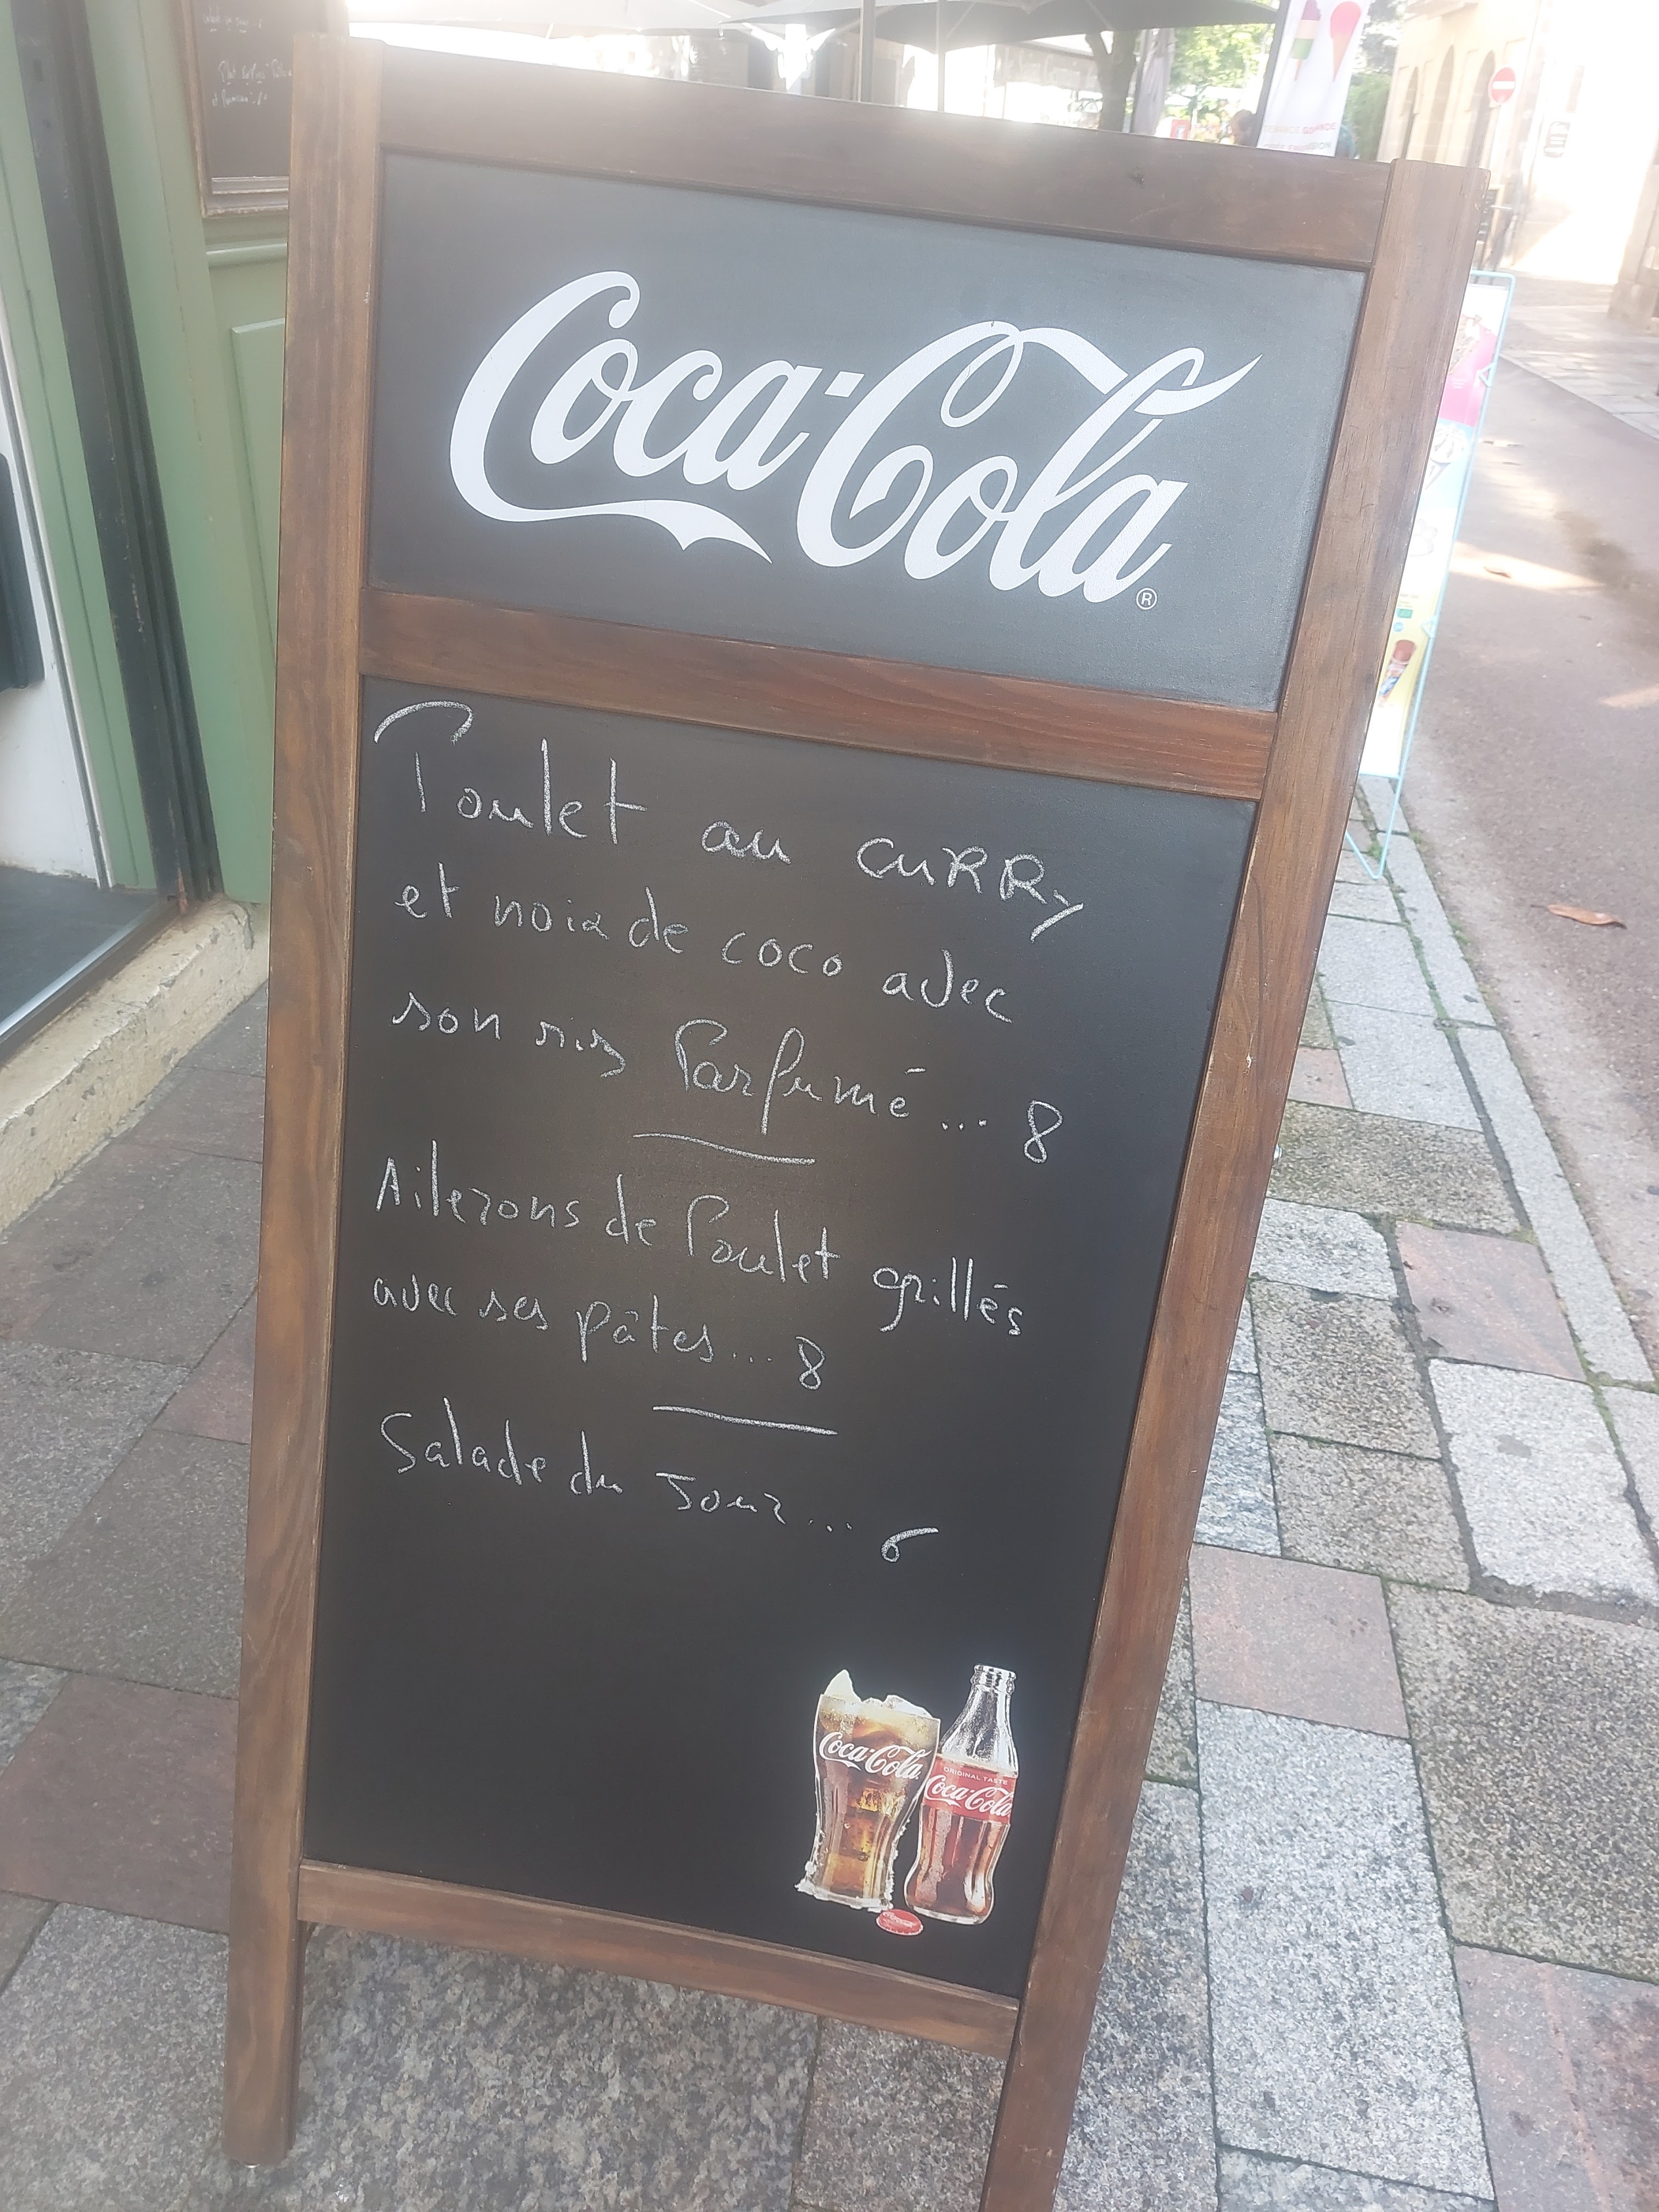 Coca-Cola
®
Poulet au CURRY
et noix de coco avec
son riz Parfumé... 8
Ailerons de Poulet grillés
avec ses pâtes... 8
Salade du Jour... 6
Coca-Cola
ORIGINAL TASTE
Coca-Cola